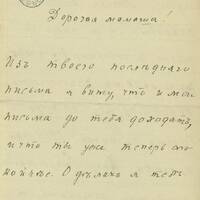 Дорогая мамаша!
Изъ твоего послѣдняго
письма я вижу, что и мои
письма до тебя доходятъ,
и что ты уже теперь спо
койнѣе. О дѣлахъ я тебѣ